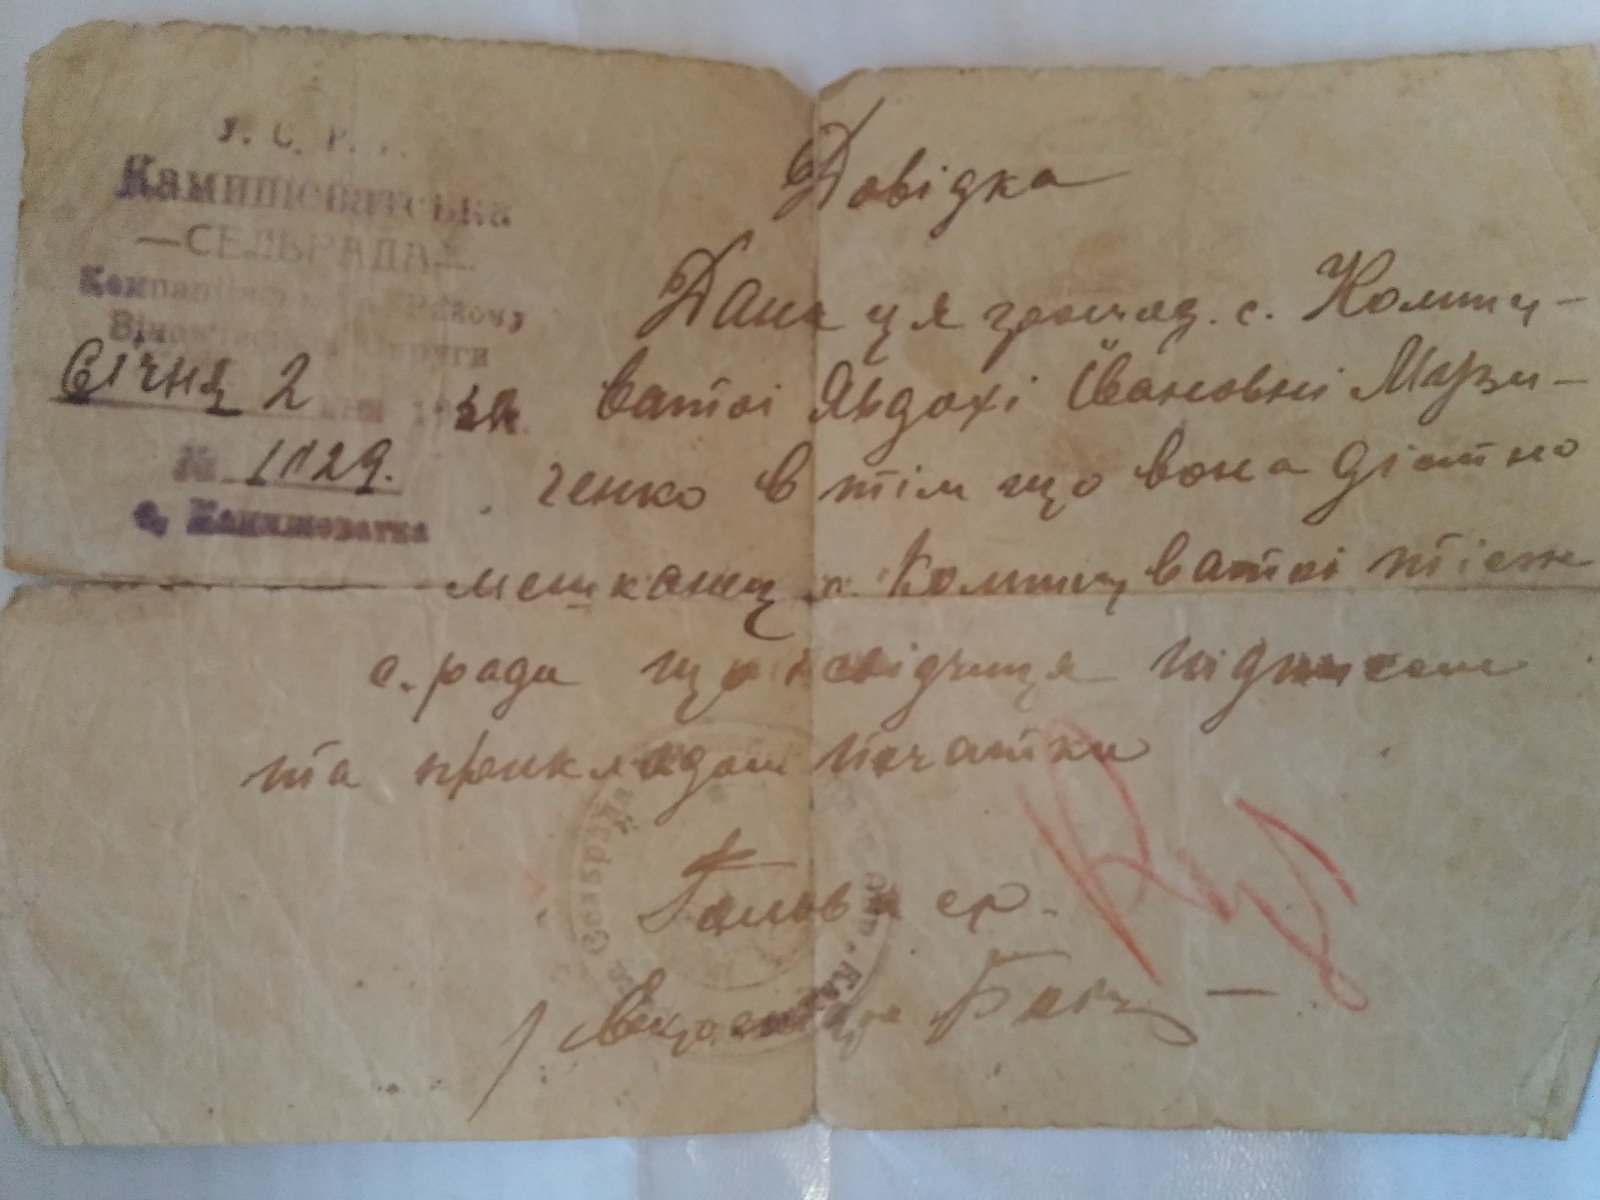 У. С. Р. Р.
Камишеватська
—СЕЛЬРАДА—
Компаніївського Району
Округи
Січня 2
№ 1129.
с. Камишеватка
Довідка
Дана ця громад. с. Комиш-
ватої Явдохі Івановні Музи-
ченко в тім що вона дістно
мешканец с. Комишуватої тієж
с. ради що і свідчиця підписом
та прикладом печатки
Голова ср.
Секретар